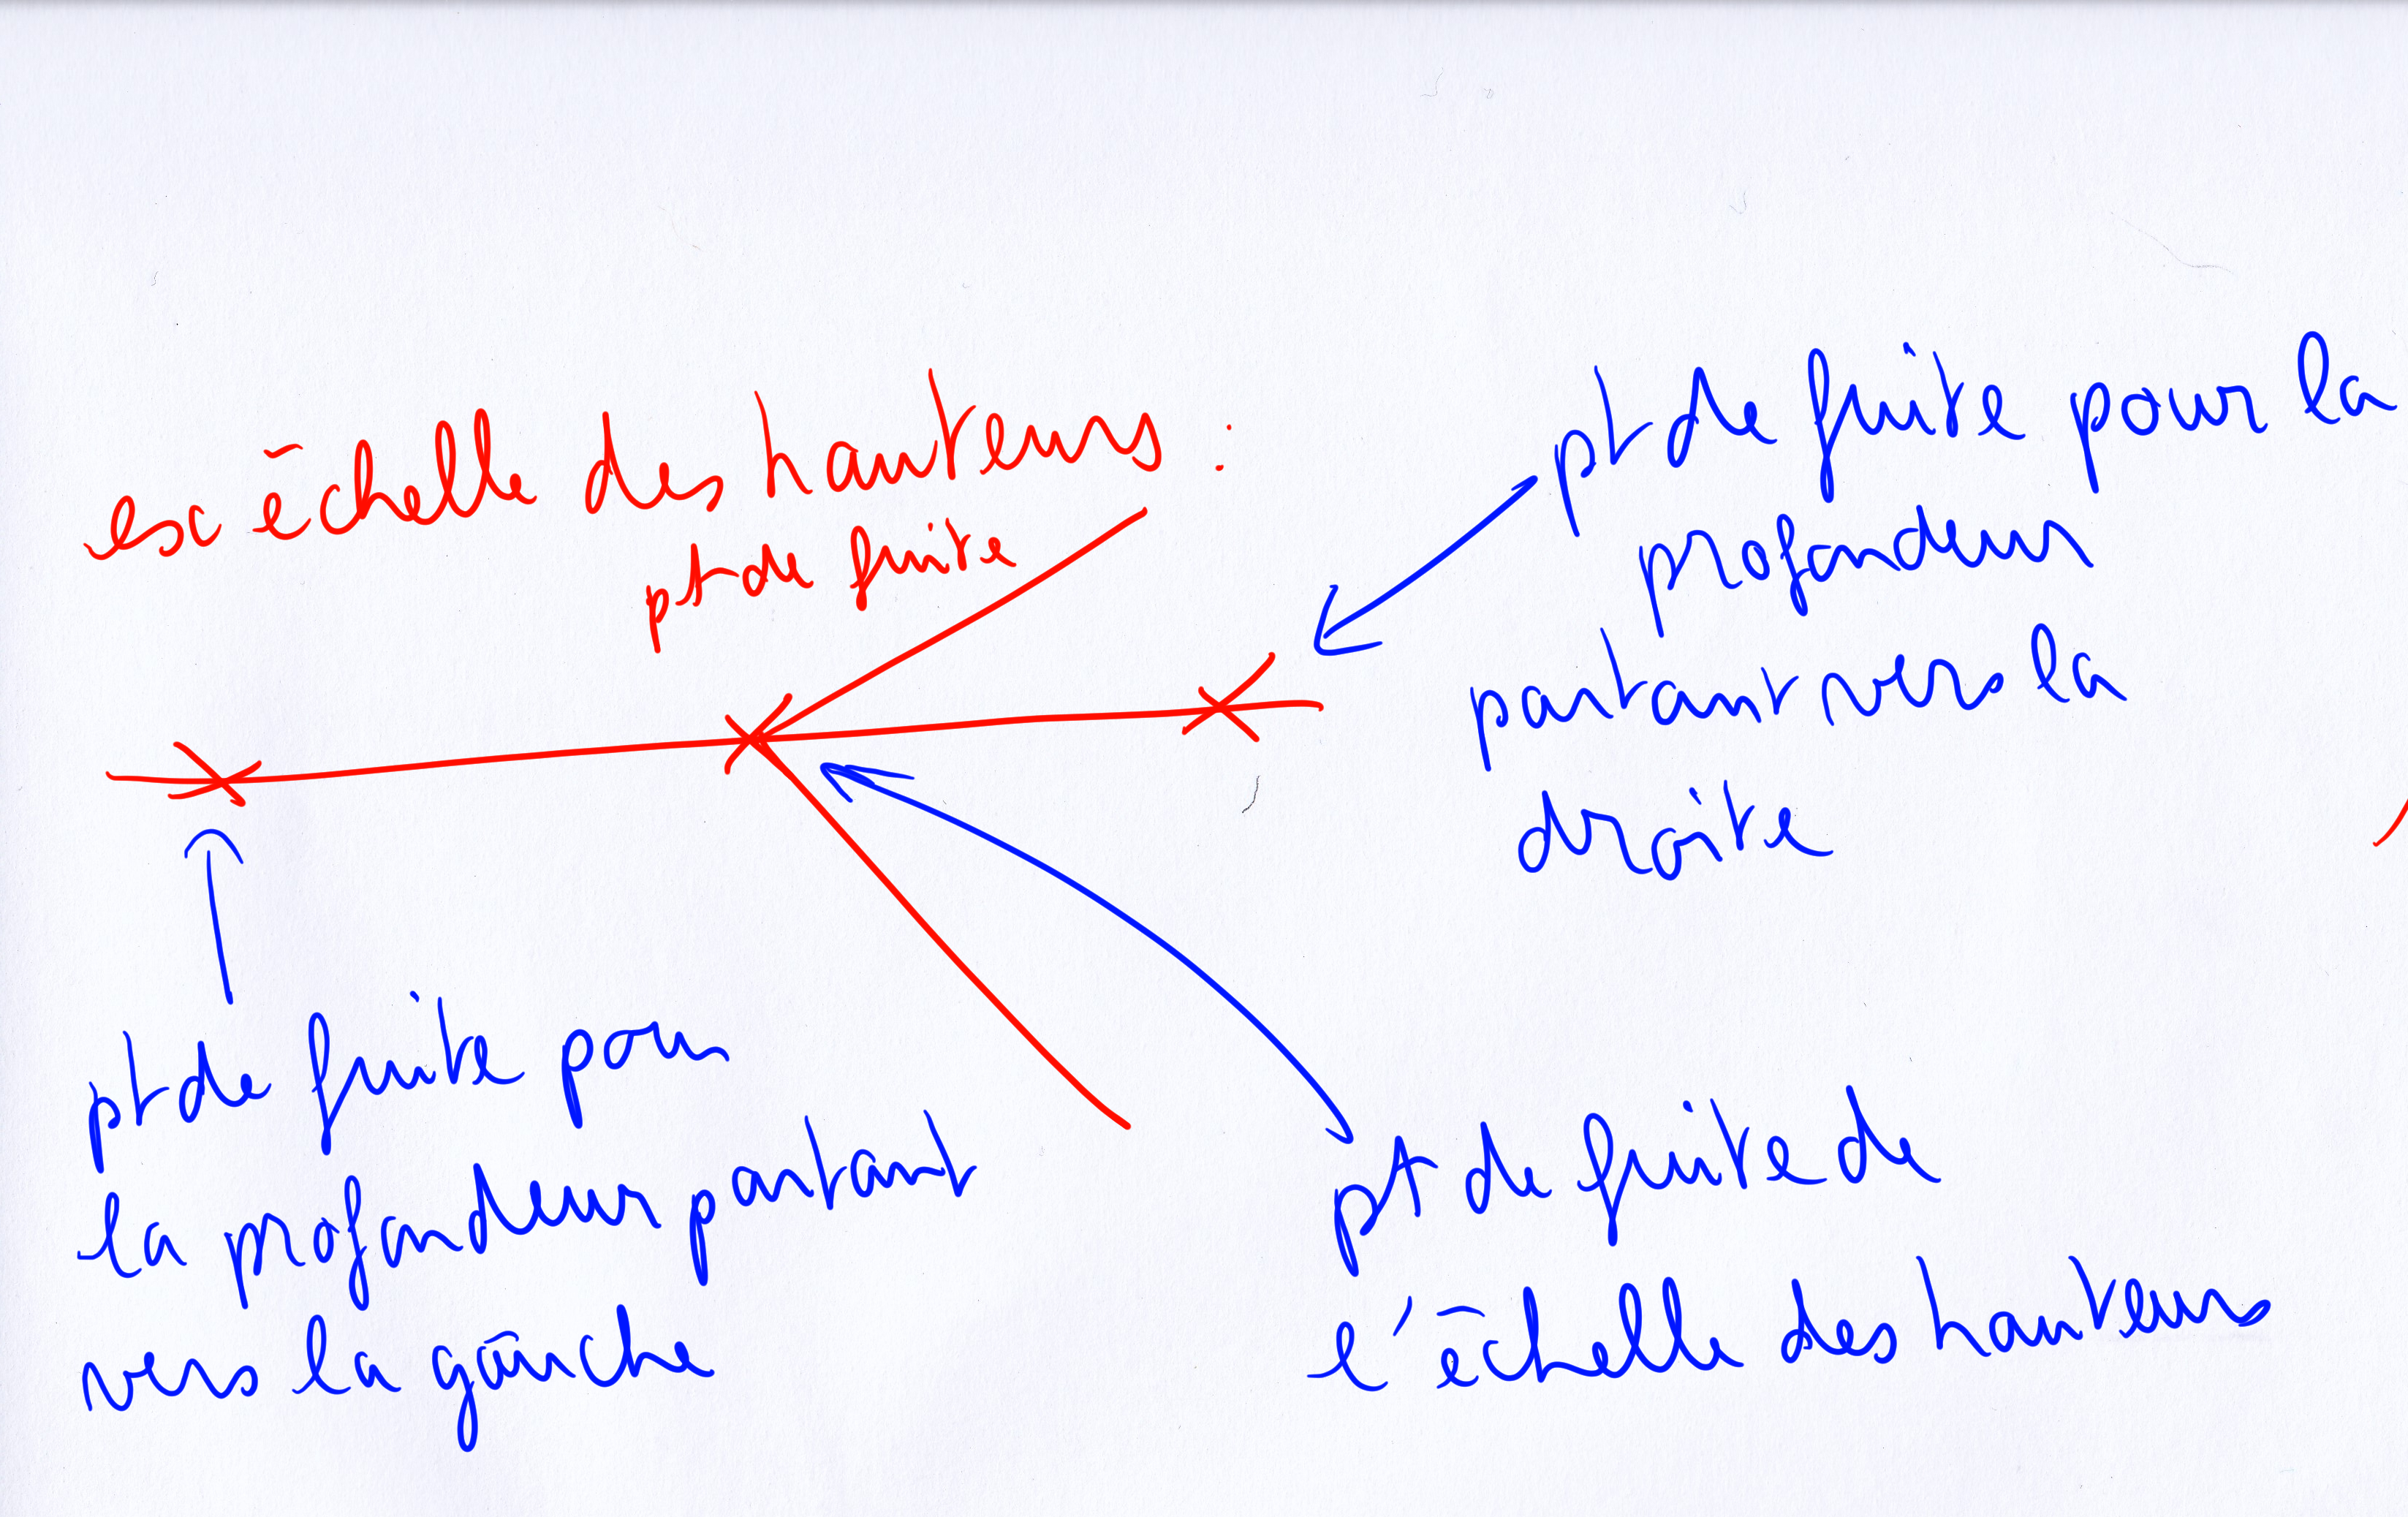 esc échelle des hauteurs :
pt de fuite
pt de fuite pour la
profondeur
partant vers la
droite
pt de fuite pour
la profondeur partant
vers la gauche
pt de fuite de
l'échelle des hauteurs